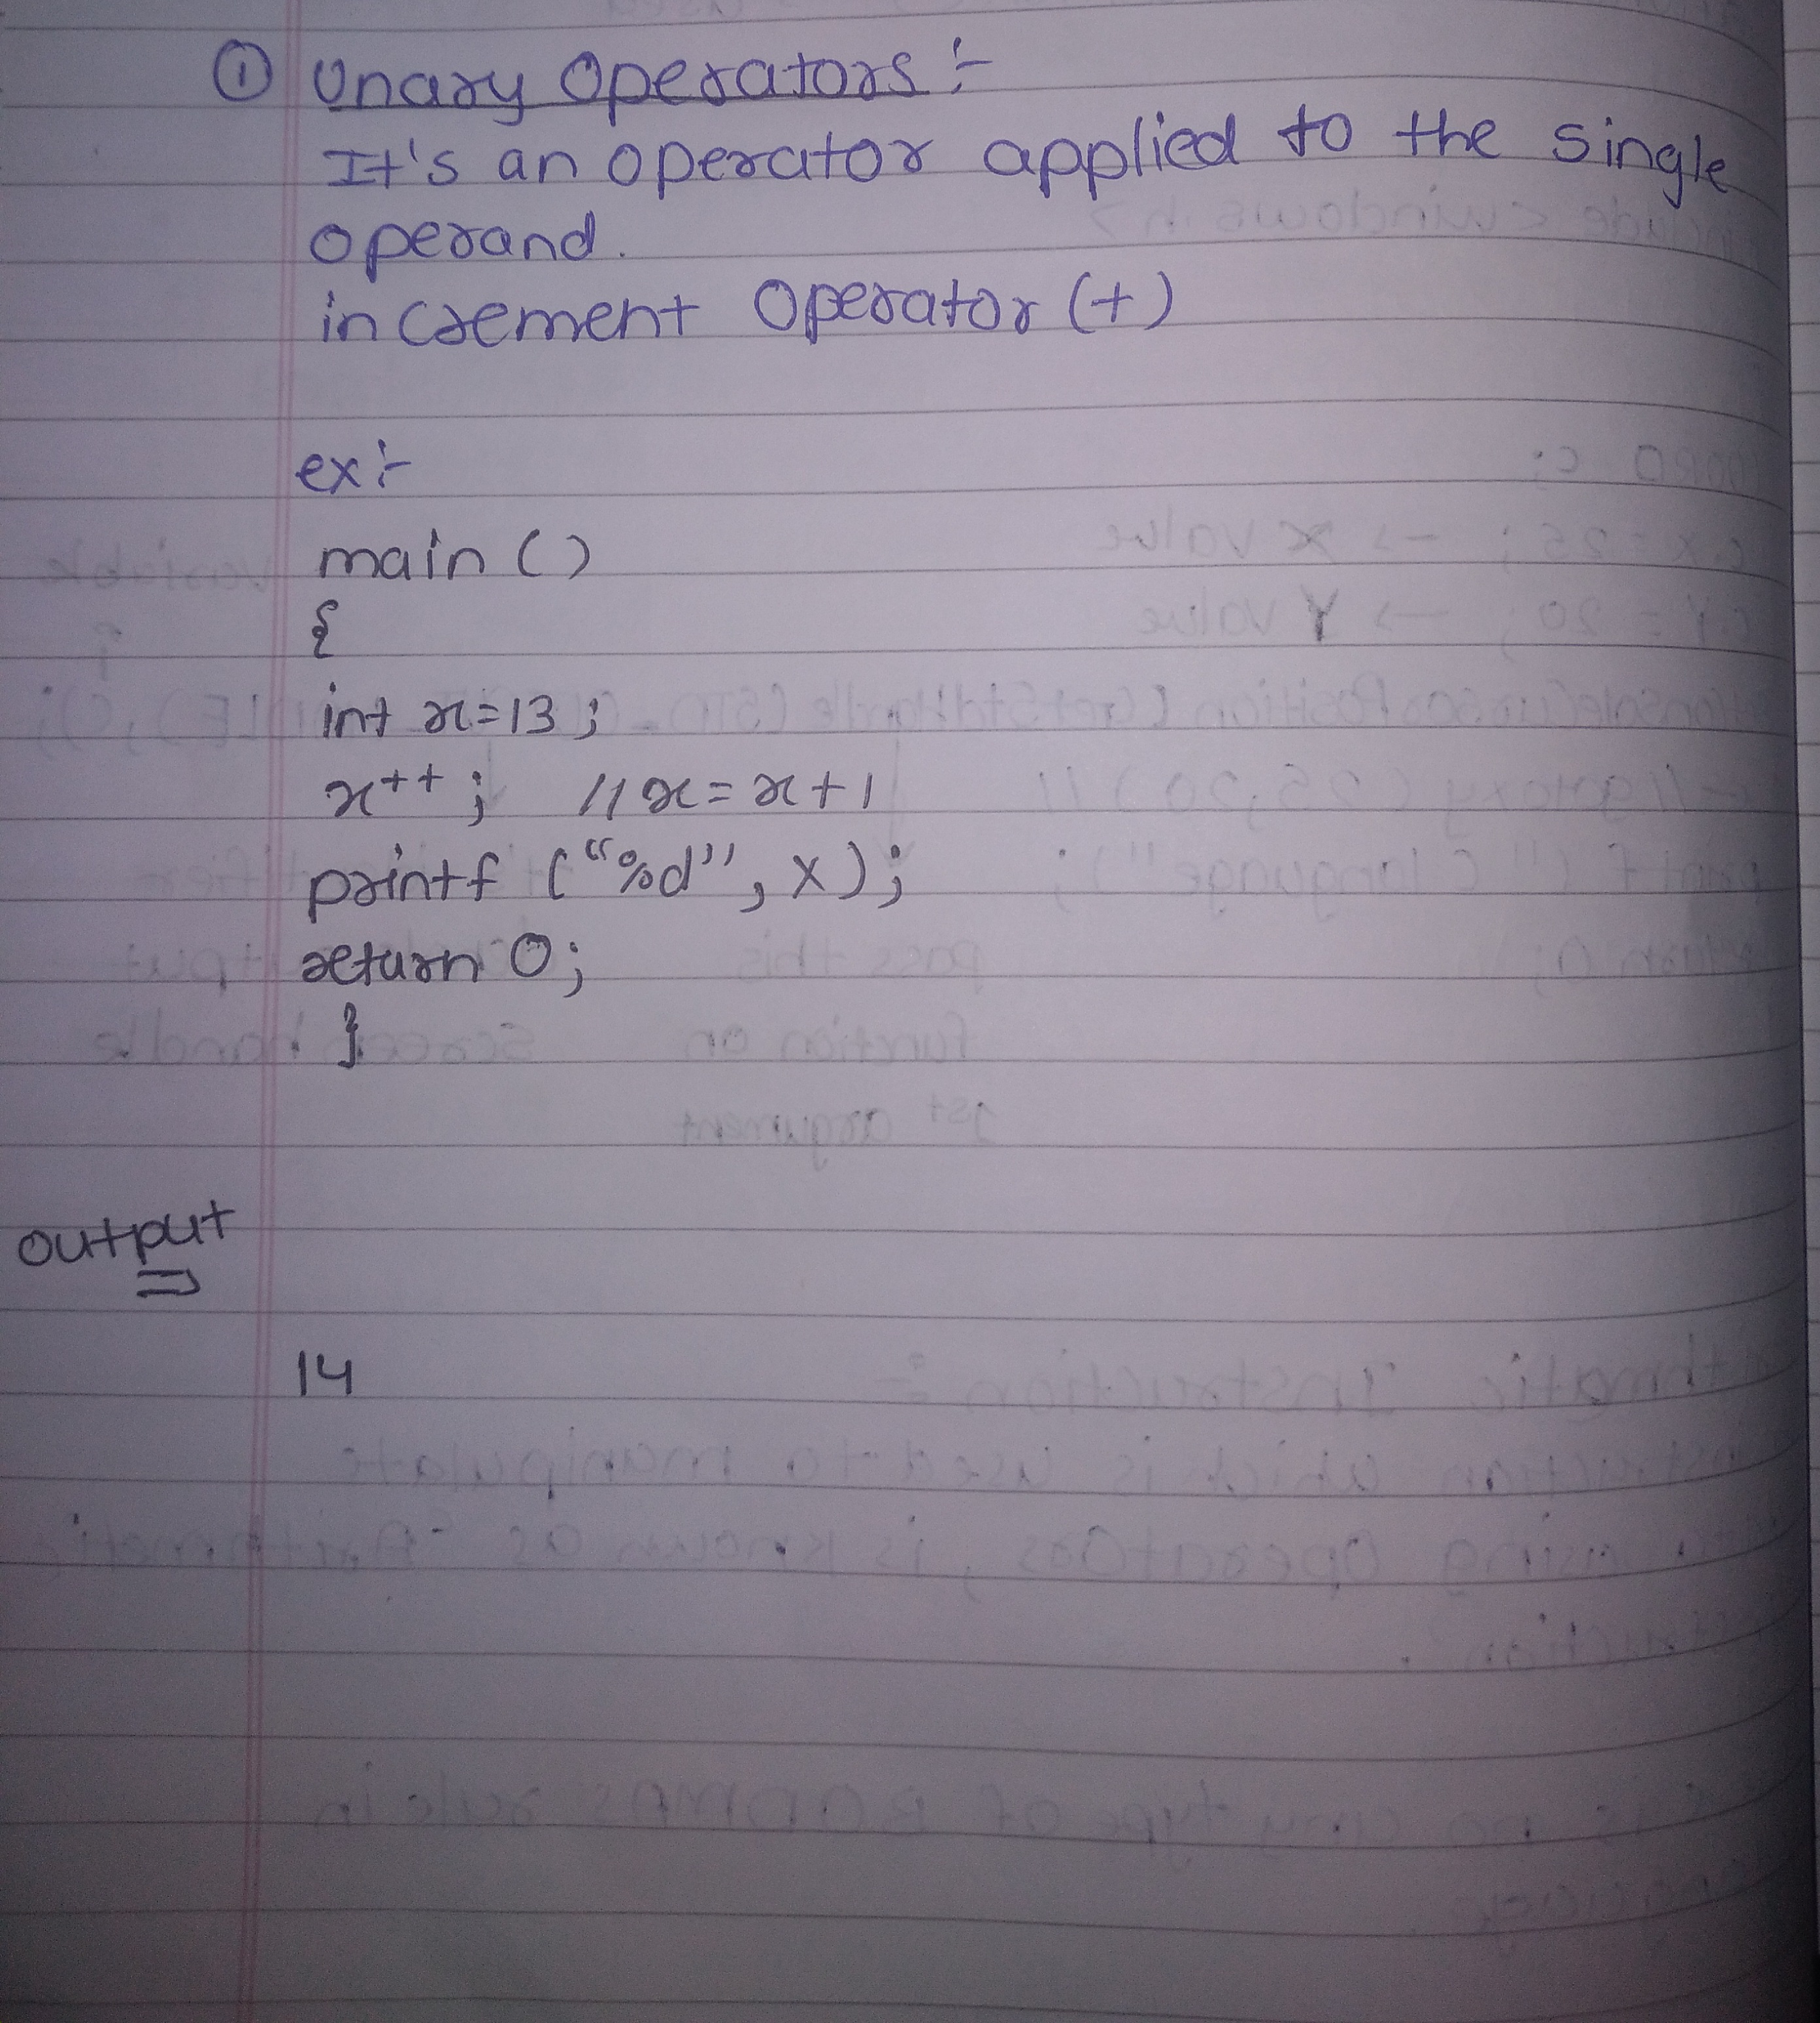 ① Unary Operators :-
It's an operator applied to the single
operand.
increment Operator (+)
ex:-
main ()
{
int x=13;
x++;   //x=x+1
printf ("%d", x);
return 0;
}
output
14